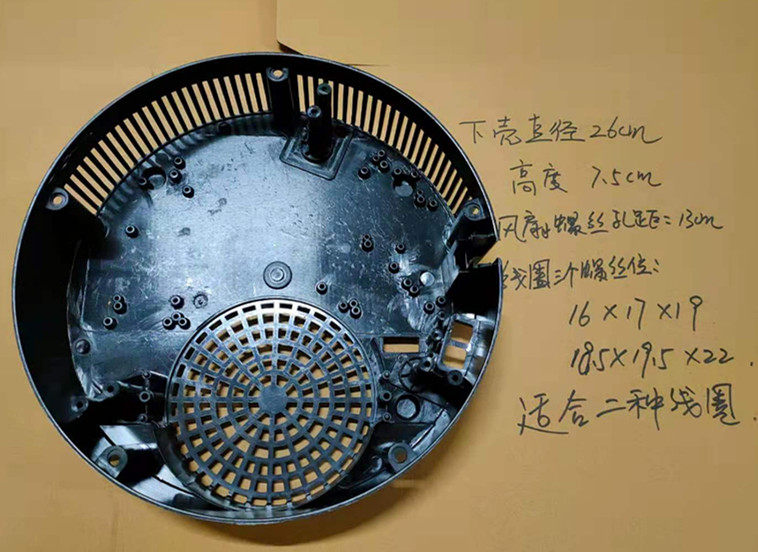 下壳直径26cm
高度 7.5cm
风扇螺丝孔距:13cm
线圈三个螺丝位:
16×17×19
18.5×19.5×22.
适合二种线圈.